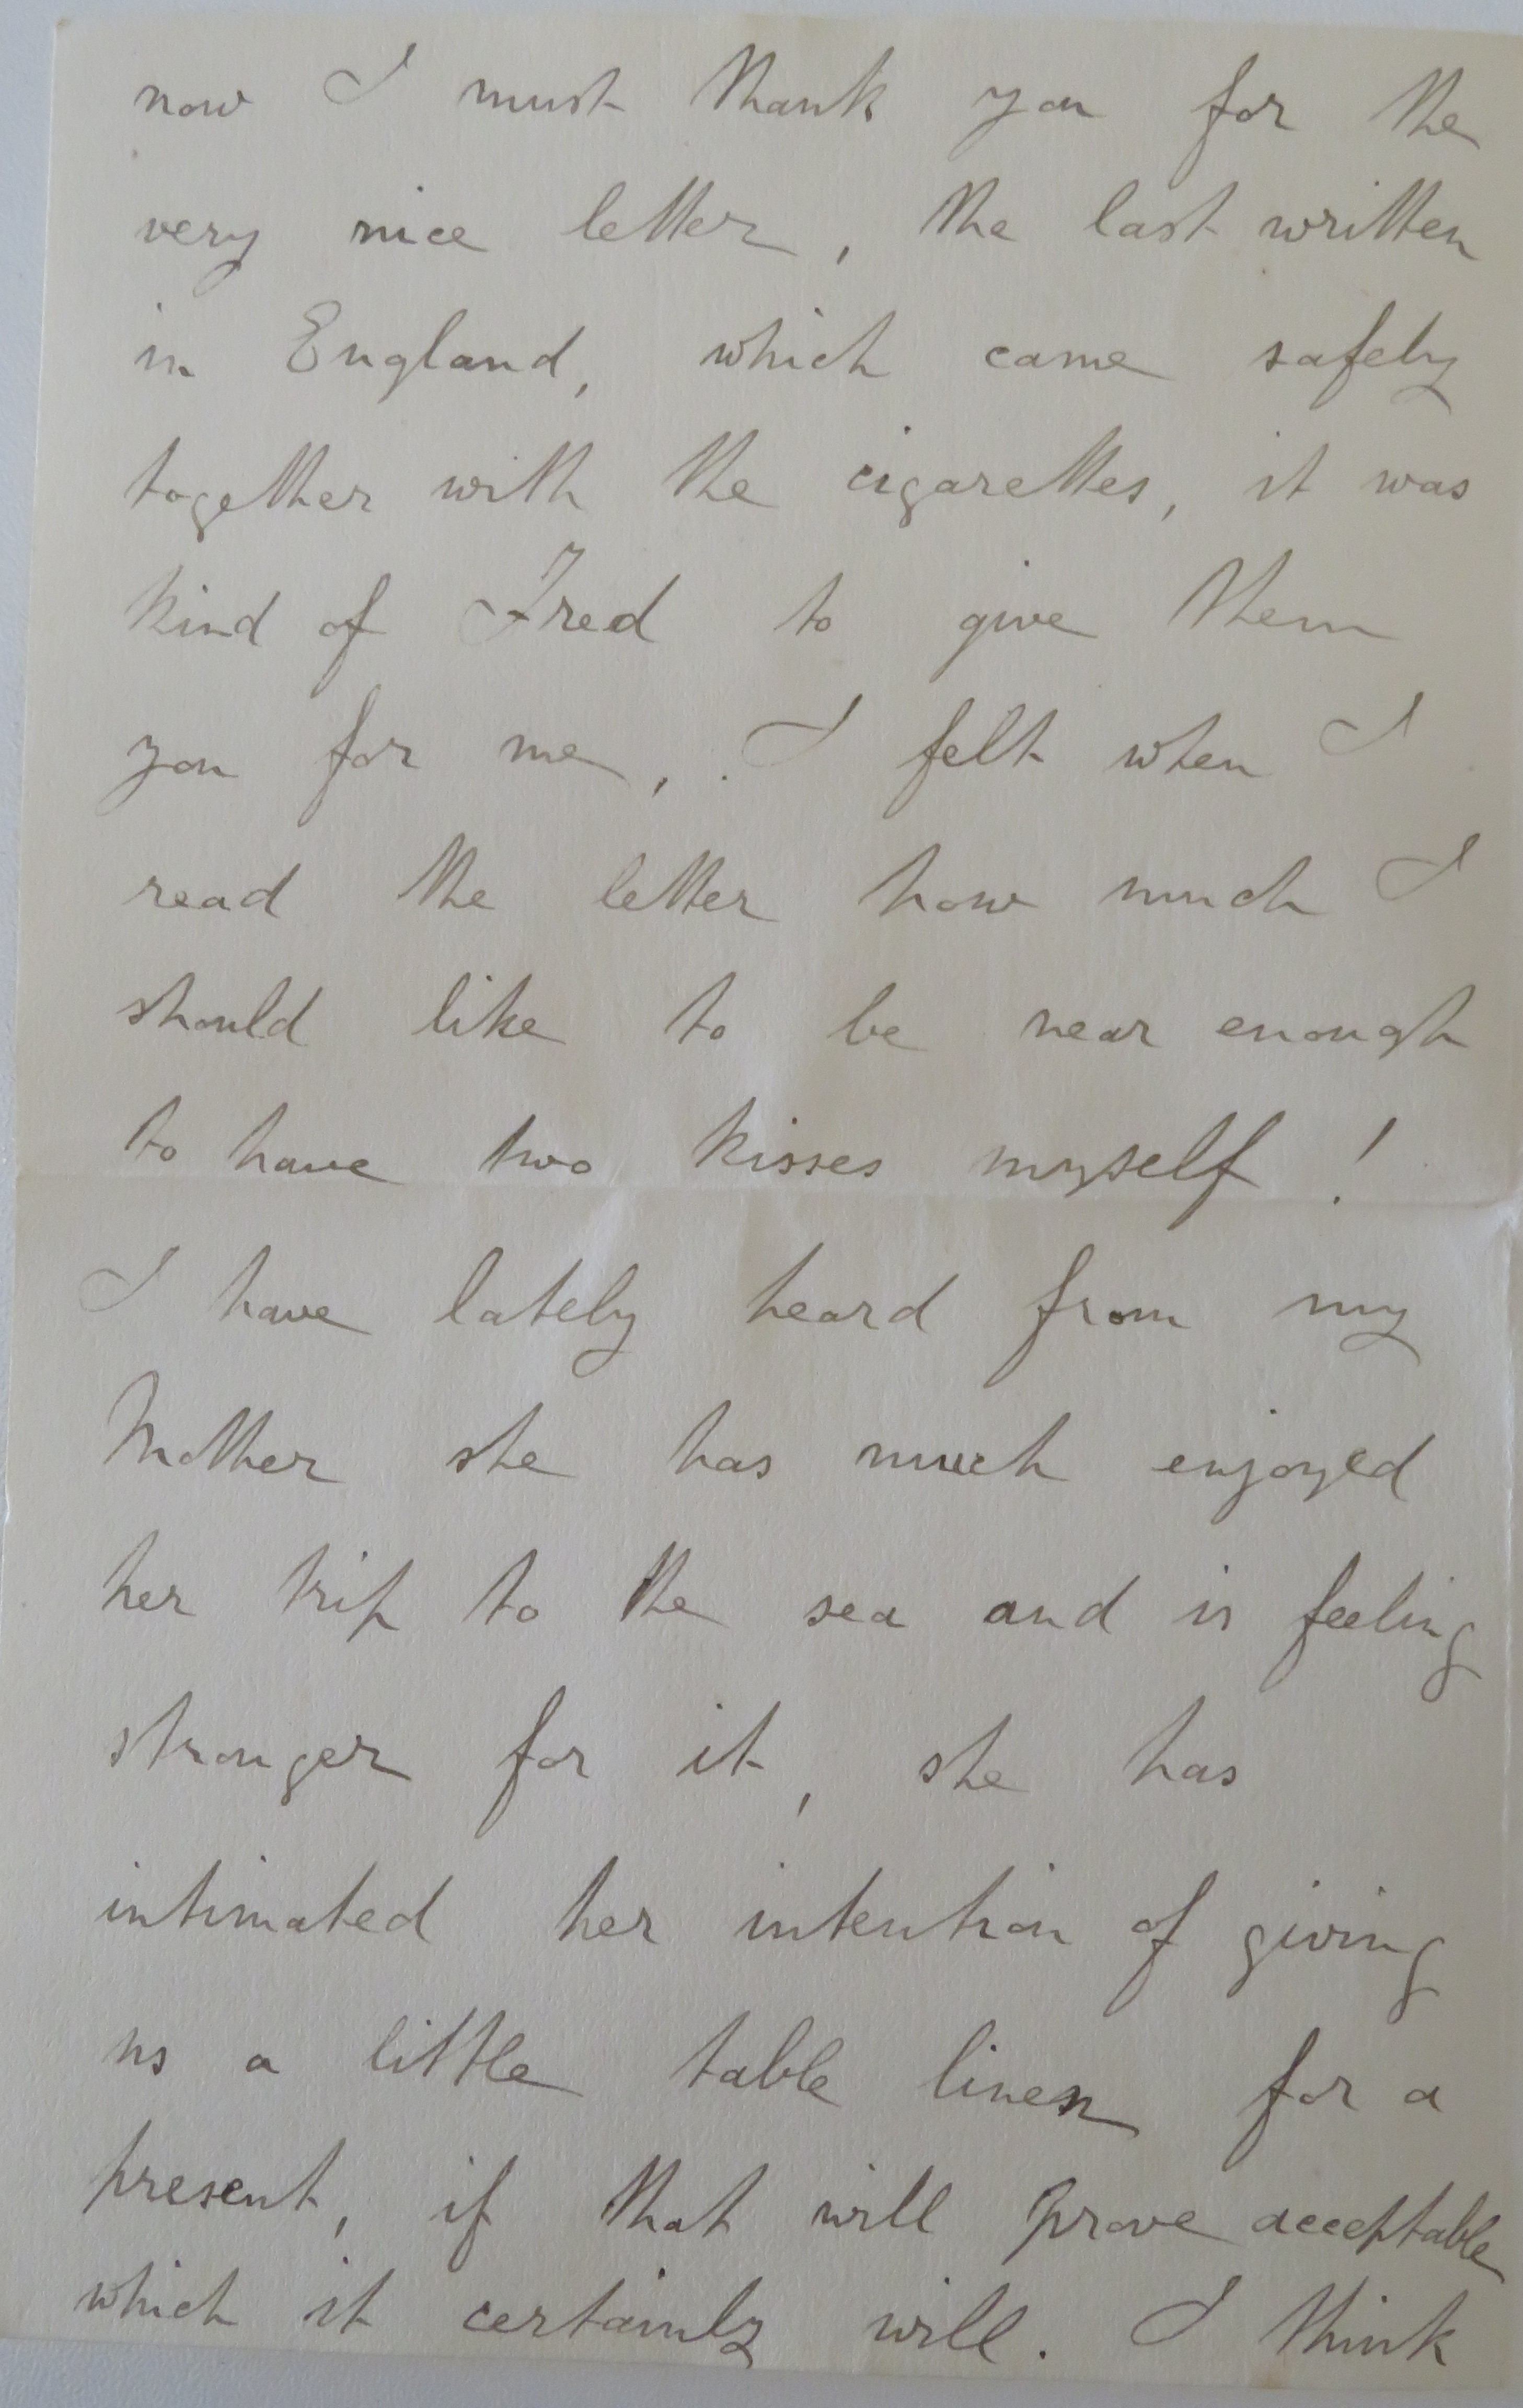 now I must thank you for the
very nice letter, the last written
in England, which came safely
together with the cigarettes, it was
kind of Fred to give them
you for me, I felt when I
read the letter how much I
should like to be near enough
to have two kisses myself !
I have lately heard from my
Mother she has much enjoyed
her trip to the sea and is feeling
stronger for it, she has
intimated her intention of giving
us a little table linen for a
present, if that will prove acceptable
which it certainly will. I think